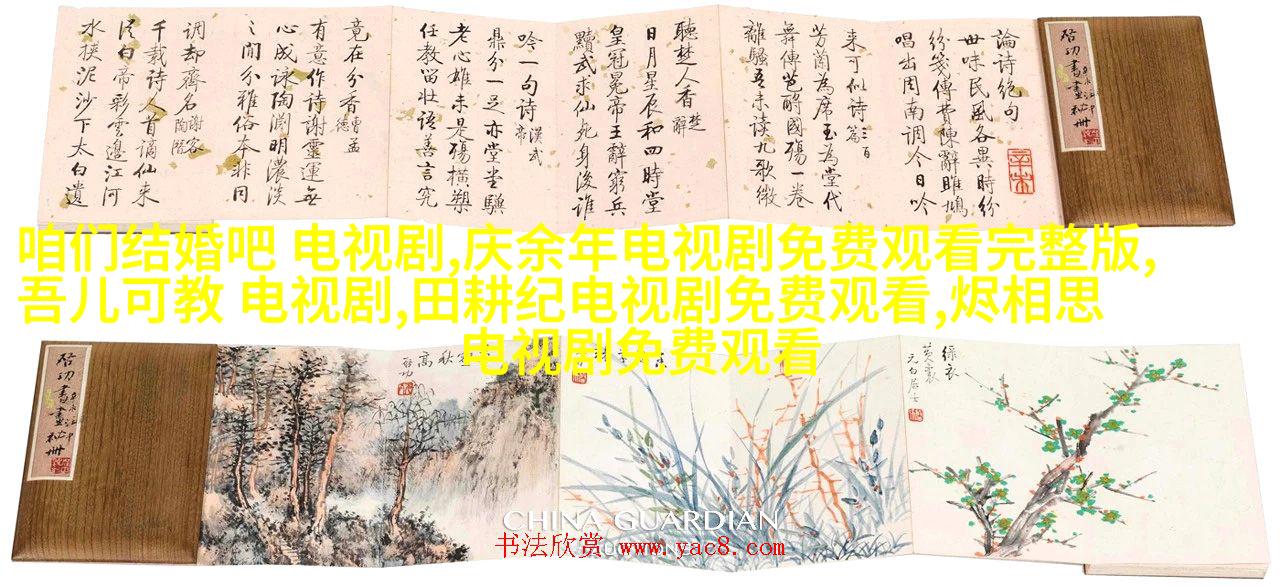 啓功書畫袖冊
論詩絕句
世味民風各異時紛
紛箋傳費陳辭雎鳩
唱出周南調今日吟
來可似詩 三百篇
芳蘭為席玉為堂代
舞傳芭酹國殤一卷
離騷吾未讀九歌微
聽楚人香 楚辭
日月星辰和四時堂
皇冠冕帝王辭窮兵
黷武求仙死身後誰
吟一句詩 漢武帝
鼎分一足亦堂堂驥
老心雄未是殤橫槊
任教留壯語善言究
竟在分香 曹孟德
有意作詩謝靈運無
心成詠陶淵明濃淡
之間分雅俗本非同
調却齊名
千載詩人首謫仙來
從白帝彩雲邊江河
水挾泥沙下太白遺
咱们结婚吧 电视剧,庆余年电视剧免费观看完整版,
吾儿可教 电视剧,田耕纪电视剧免费观看,烬相思
电视剧免费观看
啓功書畫袖冊
秋高
啓功
綠衣
黃裹
元白居士
CHINA GUARDIAN
书法欣赏 www.yac8.com